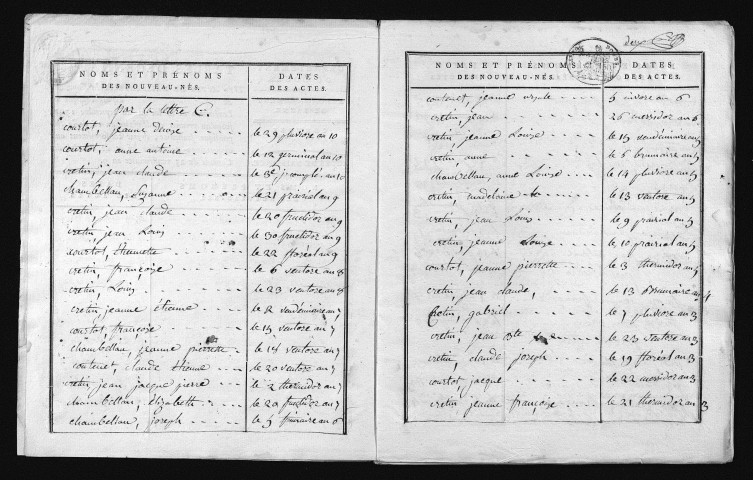 NOMS ET PRÉNOMS DES NOUVEAU-NÉS. DATES DES ACTES.
par la lettre C.
courtot, jeanne denise le 29 pluviose an 10
courtot, anne antoine le 12 germinal an 10
cretin, jean claude le 3e j. compl. an 10
chambellan, Suzanne le 21 prairial an 9
cretin, jean claude le 20 fructidor an 9
cretin, jean Louis le 30 fructidor an 9
courtot, étiennette le 22 floréal an 9
cretin, françoise le 6 ventose an 8
cretin, Louis le 23 ventose an 8
cretin, jeanne étienne le 2 vendémiaire an 7
courtot, françoise le 13 ventose an 7
chambellan, jeanne pierrette le 14 ventose an 7
coutenet, claude étienne le 20 ventose an 7
cretin, jean jacque pierre le 2 thermidor an 7
chambellan, élizabeth le 20 fructidor an 7
chambellan, joseph le 9 frimaire an 6
NOMS ET PRÉNOMS DES NOUVEAU-NÉS. DATES DES ACTES.
coutenet, jeanne ursule 5 nivose an 6
cretin, jean 26 messidor an 6
cretin, jeanne Louize le 15 vendémiaire an 5
cretin, anne le 6 brumaire an 5
chambellan, anne Louize le 14 pluviose an 5
cretin, madelaine le 13 ventose an 5
cretin, jean Louis le 9 prairial an 5
cretin, jeanne Louize le 10 prairial an 5
courtot, jeanne pierrette le 3 thermidor an 5
cretin, jean claude, le 13 brumaire an 4
cretin, gabriel le 7 pluviose an 3
cretin, jean bte le 23 ventose an 3
cretin, claude joseph le 19 floréal an 3
courtot, jacque le 22 messidor an 3
cretin, jeanne françoise le 21 thermidor an 3